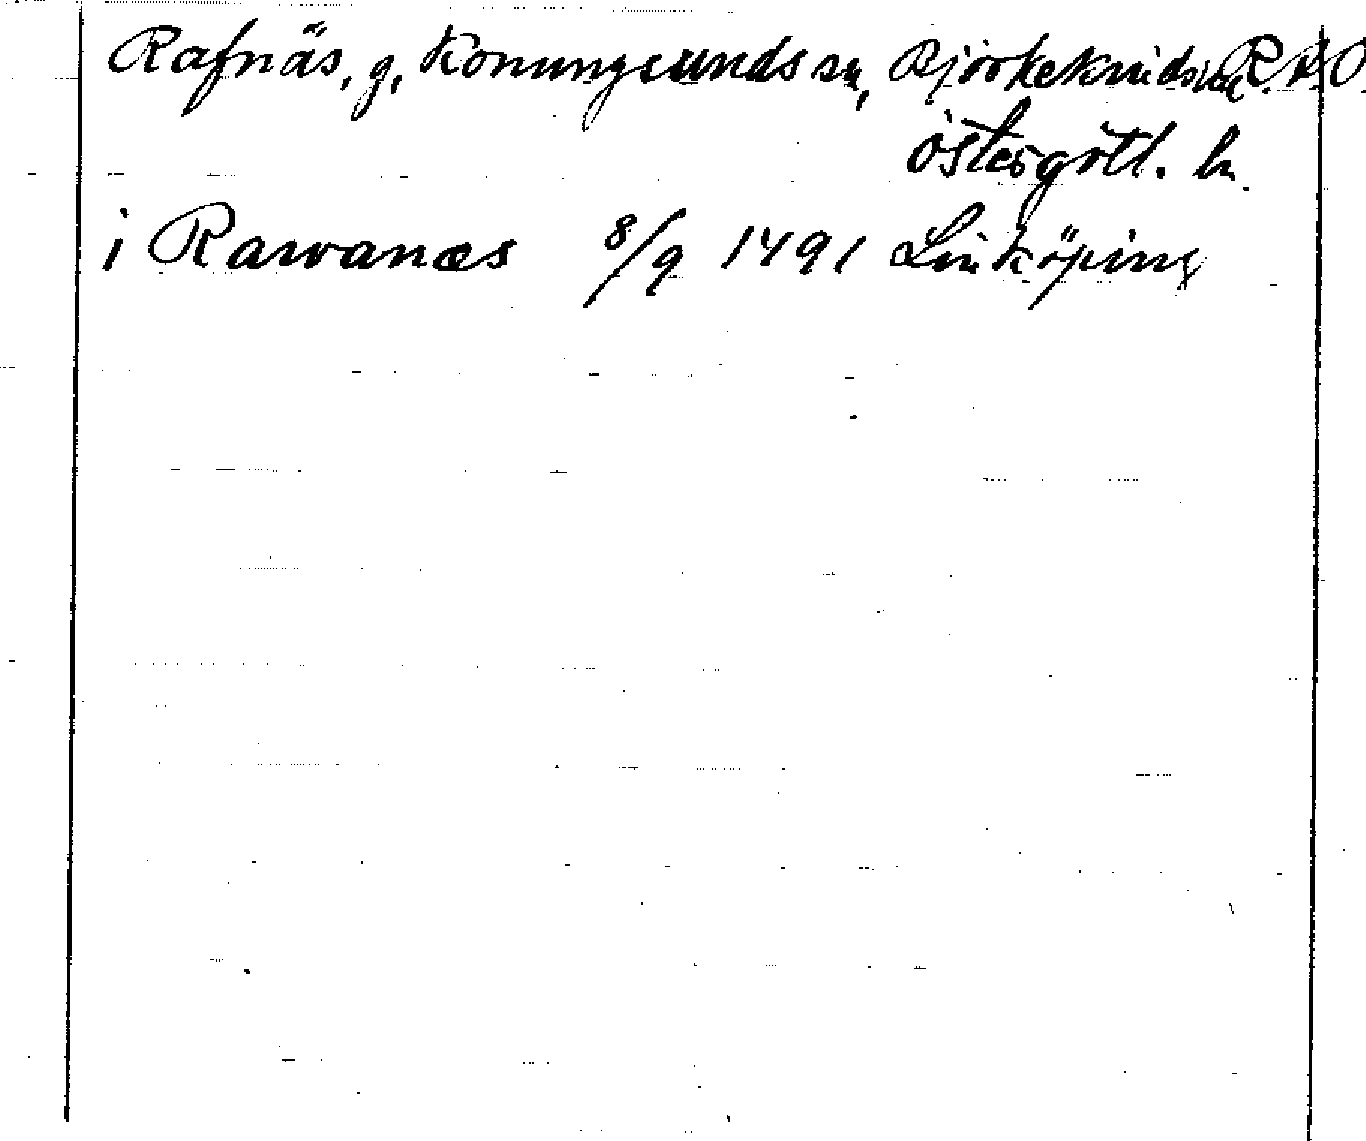 Rafnäs, g, Konungsunds sn, Björkekinds hd R.A.O.
Östergötl. ln.
i Rawanæs 8/9 1491 Linköping